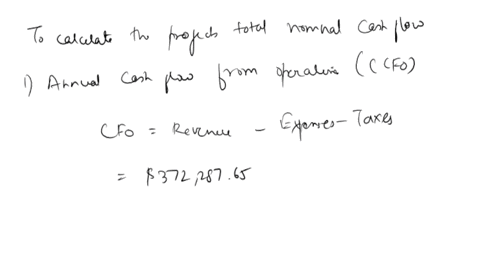 To calculate the projects total nominal cash flow
1) Annual Cash flow from operations (CCFO)
CFO = Revenue - Expenses - Taxes
= $372,287.65